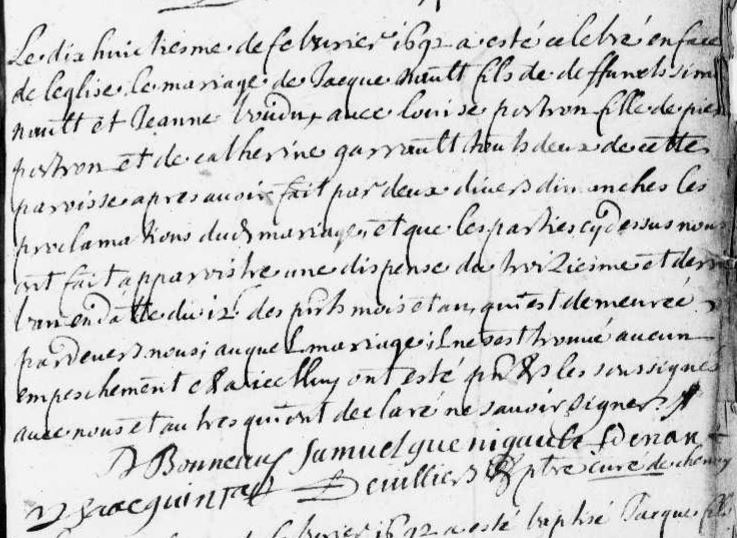 Le dix huictiesme de febvrier 1692 a esté celebré en face
de leglise le mariage de Jacque nault fils de deffuncts Sim
nault et Jeanne boudu avec louise postron fille de pie
postron et de catherine garrault touts deux de cette
parroisse apres avoir fait par deux divers dimanches les
proclamations dud mariage et que les parties cy dessus nous
ont fait apparroistre une dispense du troiziesme et dern
ban en datte du 12 des pnts mois et an, qui est demeurée
pardevers nous; auquel mariage il ne sest trouvé aucun
empeschement & a icelluy ont esté pnts les soussignés
avec nous et autres qui ont declaré ne savoir signer
Bonneau Samuel guenigault
Jacquintas Devilliers ptre curé de
febvrier 1692 a esté baptisé Jacque fils